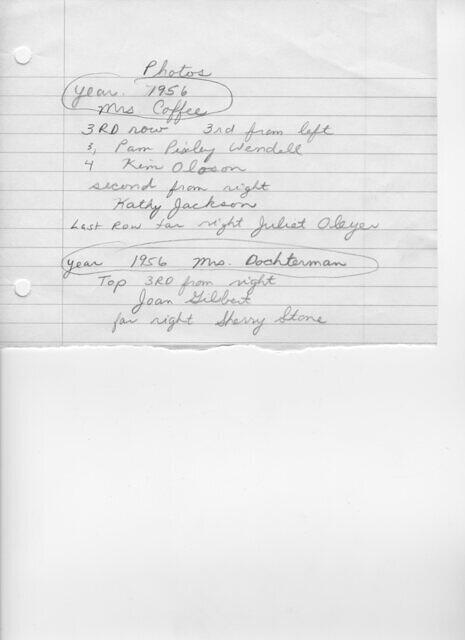 Photos
year. 1956
Mrs Coffee
3RD row 3rd from left
3, Pam Pixley Wendell
4 Kim Oloson
second from right
Kathy Jackson
Last Row far right Juliet
year 1956 Mrs. Dochterman
Top 3RD from right
Joan Gilbert
far right Sherry Stone